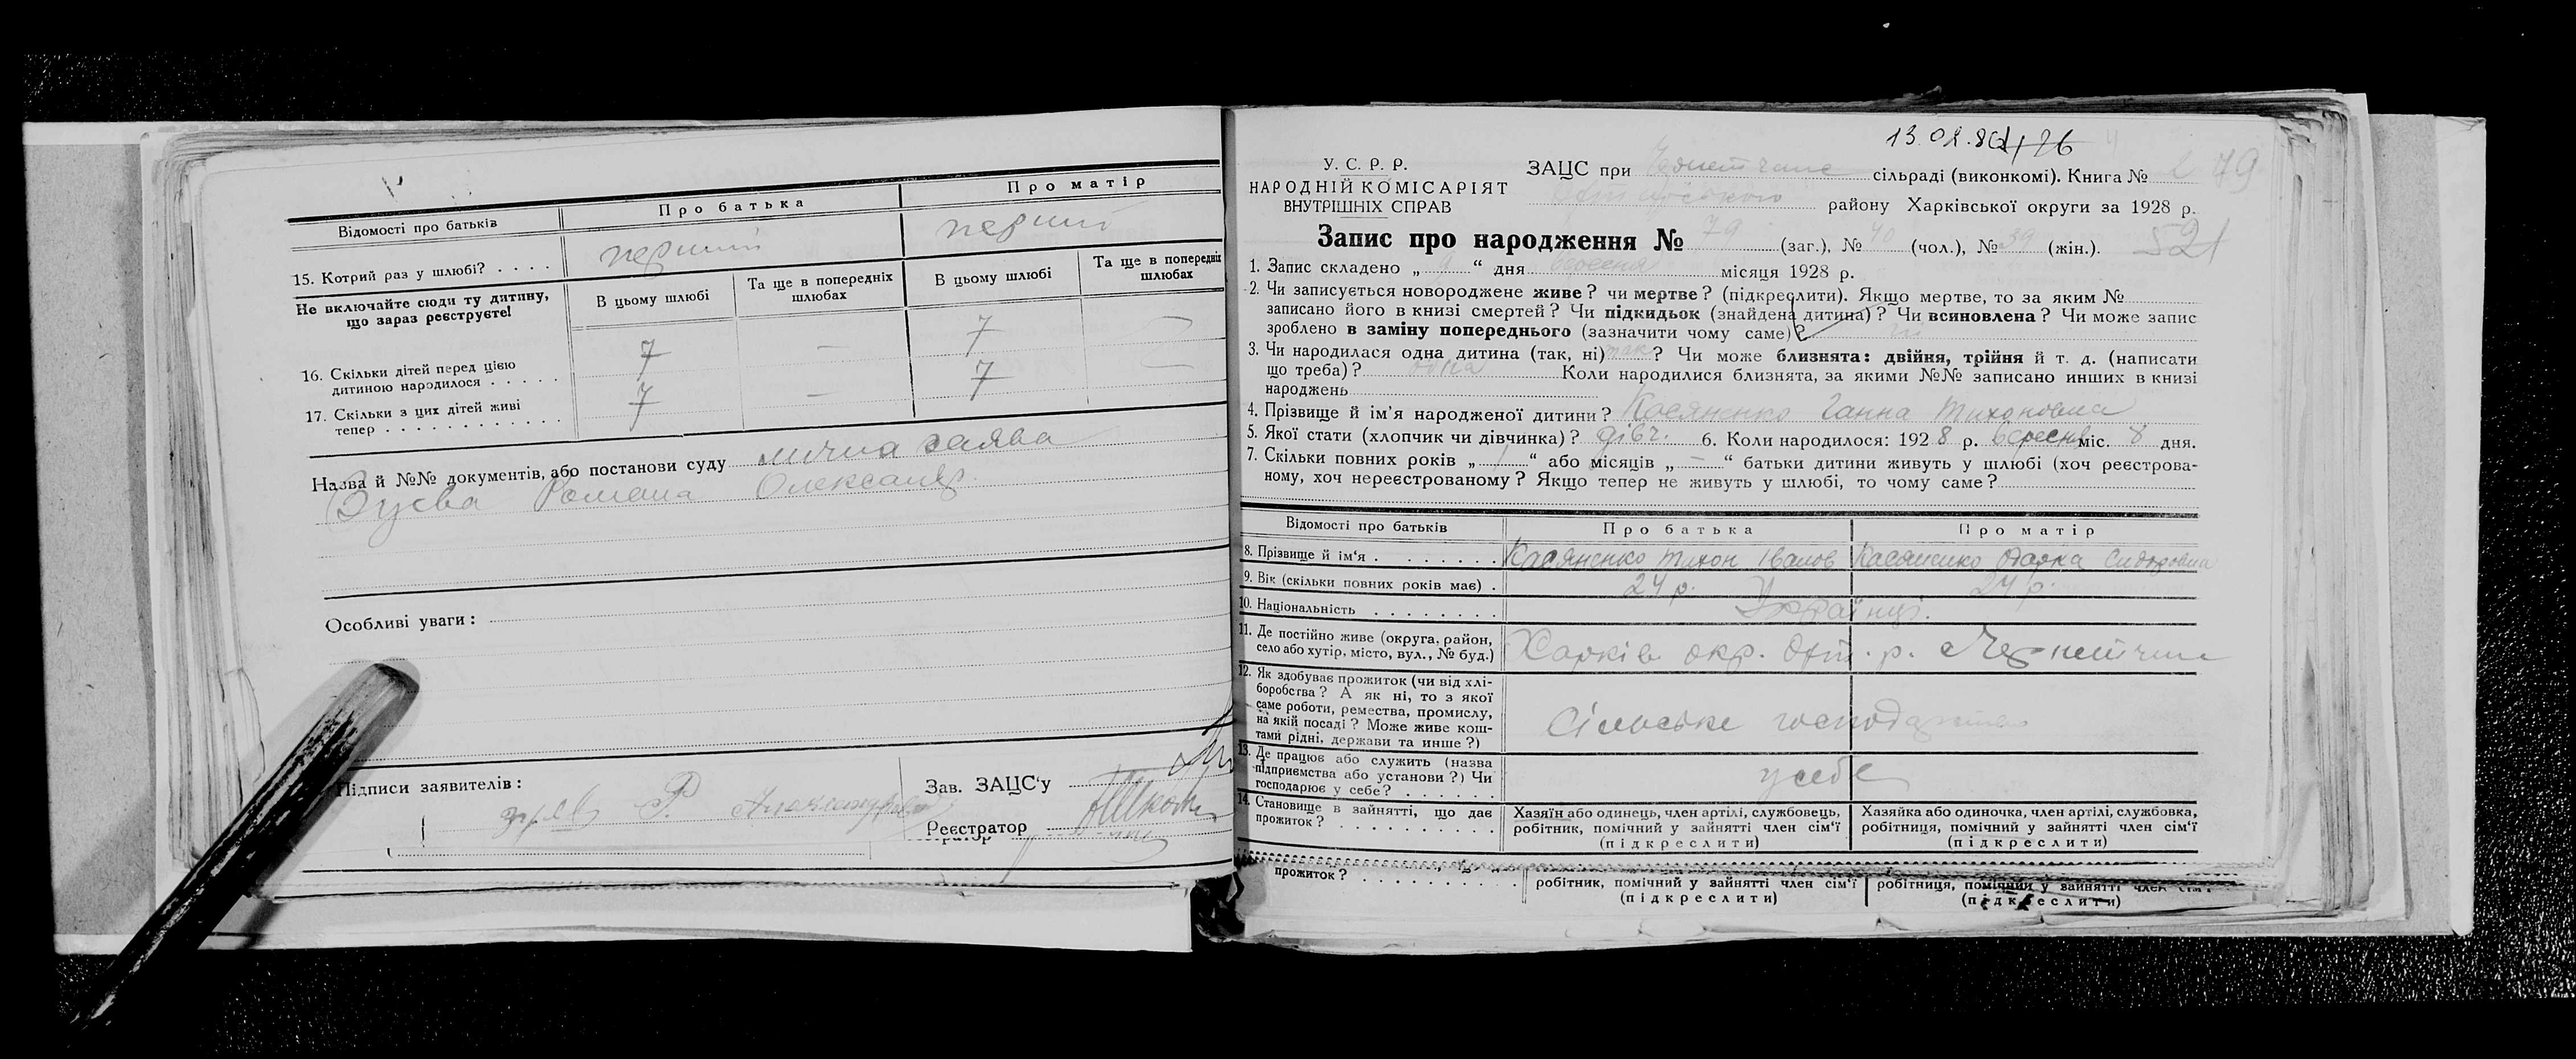 Відомості про батьків
Про батька
Про матір
15. Котрий раз у шлюбі? . . . .
перший
перший
Не включайте сюди ту дитину,
що зараз реєструєте!
В цьому шлюбі
Та ще в попередніх
шлюбах
В цьому шлюбі
Та ще в попередніх
шлюбах
16. Скільки дітей перед цією
дитиною народилося . . . . .
7
—
7
—
17. Скільки з цих дітей живі
тепер . . . . . . . . . . . .
7
—
7
—
Назва й №№ документів, або постанови суду лична заява
Зуєва Романа Олександр.
Особливі уваги:
Підписи заявителів:
Зав. ЗАЦС'у
Реєстратор
13.02.86
У. С. Р. Р.
НАРОДНІЙ КОМІСАРІЯТ
ВНУТРІШНІХ СПРАВ
ЗАЦС при сільраді (виконкомі). Книга №
79
району Харківської округи за 1928 р.
521
Запис про народження № 79 (заг.), № 40 (чол.), № 39 (жін.).
1. Запис складено „ 9 “ дня вересня місяця 1928 р.
2. Чи записується новороджене живе? чи мертве? (підкреслити). Якщо мертве, то за яким №
записано його в книзі смертей? Чи підкидьок (знайдена дитина)? Чи всиновлена? Чи може запис
зроблено в заміну попереднього (зазначити чому саме)? ні
3. Чи народилася одна дитина (так, ні) так? Чи може близнята: двійня, трійня й т. д. (написати
що треба)? одна Коли народилися близнята, за якими №№ записано инших в книзі
народжень
4. Прізвище й ім'я народженої дитини? Косяненко Ганна Тихоновна
5. Якої стати (хлопчик чи дівчинка)? дівч. 6. Коли народилося: 1928 р. вересня міс. 8 дня.
7. Скільки повних років „ 1 “ або місяців „ — “ батьки дитини живуть у шлюбі (хоч реєстрова-
ному, хоч нереєстрованому? Якщо тепер не живуть у шлюбі, то чому саме?
Відомості про батьків
Про батька
Про матір
8. Прізвище й ім'я . . . . . . .
Касяненко Тихон Іванов
Касяненко Одарка Сидоровна
9. Вік (скільки повних років має) .
24 р.
24 р.
10. Національність . . . . . . . .
Українці.
11. Де постійно живе (округа, район,
село або хутір, місто, вул., № буд.)
Харків. окр. Охт. р. Чернетчина
12. Як здобуває прожиток (чи від хлі-
боробства? А як ні, то з якої
саме роботи, ремества, промислу,
на якій посаді? Може живе кош-
тами рідні, держави та инше?)
Сільське господарство
13. Де працює або служить (назва
підприємства або установи?) Чи
господарює у себе? . . . . . .
у себе
14. Становище в зайнятті, що дає
прожиток? . . . . . . . . . .
Хазяїн або одинець, член артілі, службовець,
робітник, помічний у зайнятті член сім'ї
(підкреслити)
Хазяйка або одиночка, член артілі, службовка,
робітниця, помічний у зайнятті член сім'ї
(підкреслити)
прожиток? . . . . . . . . . .
робітник, помічний у зайнятті член сім'ї
(підкреслити)
робітниця, помічний у зайнятті член сім'ї
(підкреслити)